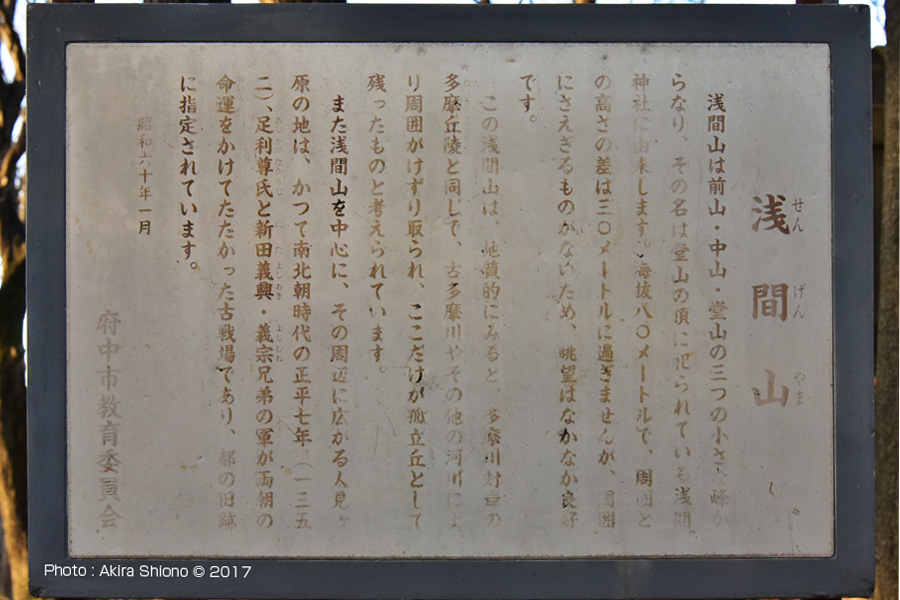 浅間山
せんげんやま
浅間山は前山・中山・堂山の三つの小さな峰か
らなり、その名は堂山の頂に祀られている浅間
神社に由来します。海抜八〇メートルで、周囲と
の高さの差は三〇メートルに過ぎませんが、周囲
にさえぎるものがないため、眺望はなかなか良好
です。
この浅間山は、地質的にみると、多摩川対岸の
多摩丘陵と同じで、古多摩川やその他の河川によ
り周囲がけずり取られ、ここだけが孤立丘として
残ったものと考えられています。
また浅間山を中心に、その周辺に広がる人見ヶ
原の地は、かつて南北朝時代の正平七年(一三五
二)、足利尊氏と新田義興・義宗兄弟の軍が両朝の
命運をかけてたたかった古戦場であり、都の旧跡
に指定されています。
昭和六十年一月
府中市教育委員会
Photo : Akira Shiono © 2017